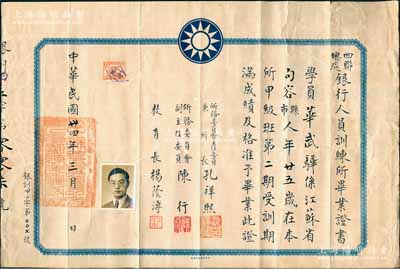 四聯總處銀行人員訓練所畢業證書
學員華武驊係江蘇省
句容縣市人年廿五歲在本
所甲級班第二期受訓期
滿成績及格准予畢業此證
所務委員會主任委員
兼所長孔祥熙
所務委員會
副主任委員陳行
教育長楊蔭溥
中華民國卅四年三月 日